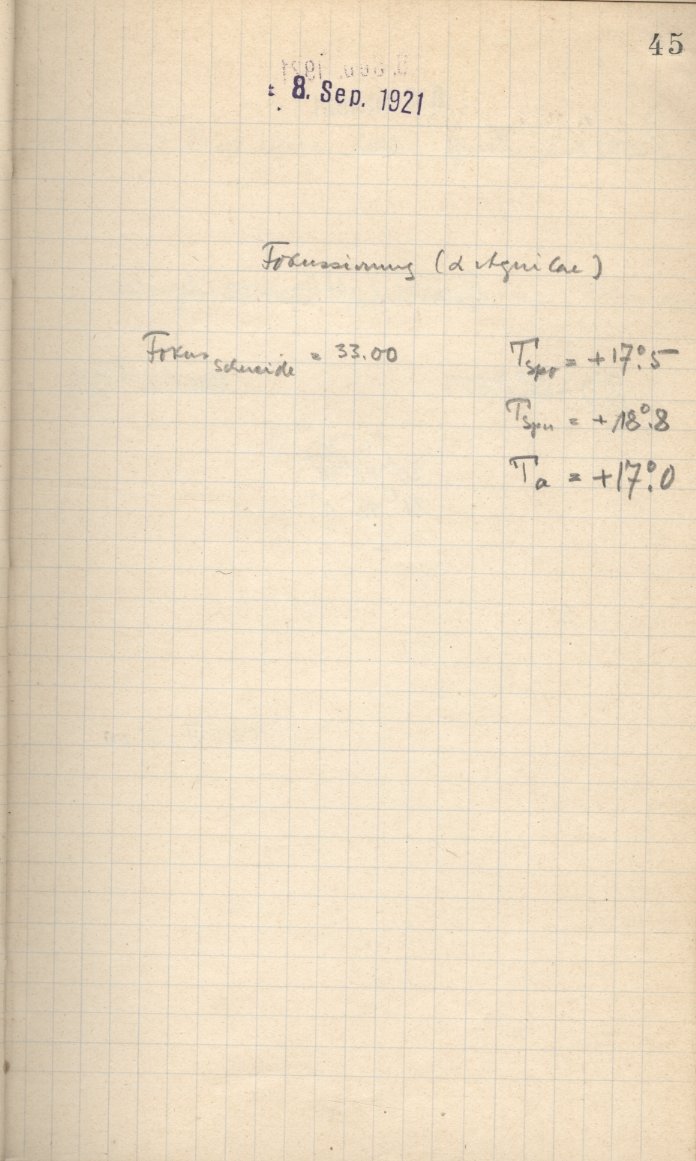 45
8. Sep. 1921
Fokussierung (α Aquilae)
Fokus Schneide = 33.00 T Spo = +17°.5
T Spu = +18°.8
T a = +17°.0